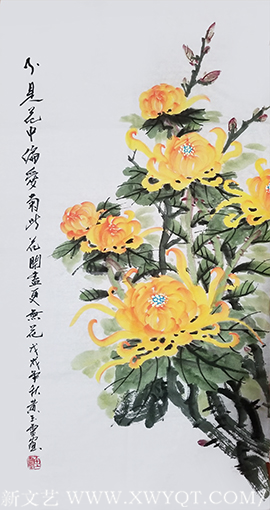 不是花中偏爱菊此花開盡更無花戊戌年秋黄玉雲寫
新文艺 WWW.XWYQT.COM